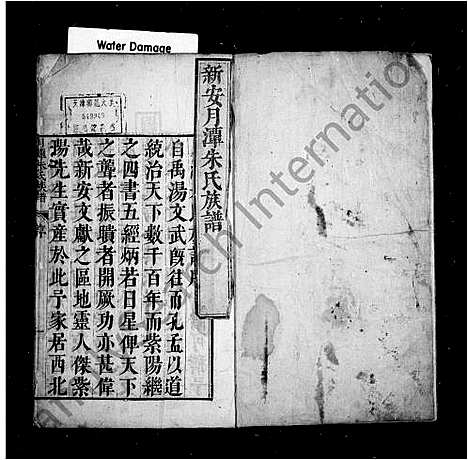 Water Damage
新安月潭朱氏族譜
自禹湯文武既往而孔孟以道
統治天下數千百年而紫陽繼
之四書五經炳若日星俾天下
之聾者振瞶者開厥功亦甚偉
哉新安文獻之區地靈人傑紫
陽先生實産於此予家居西北